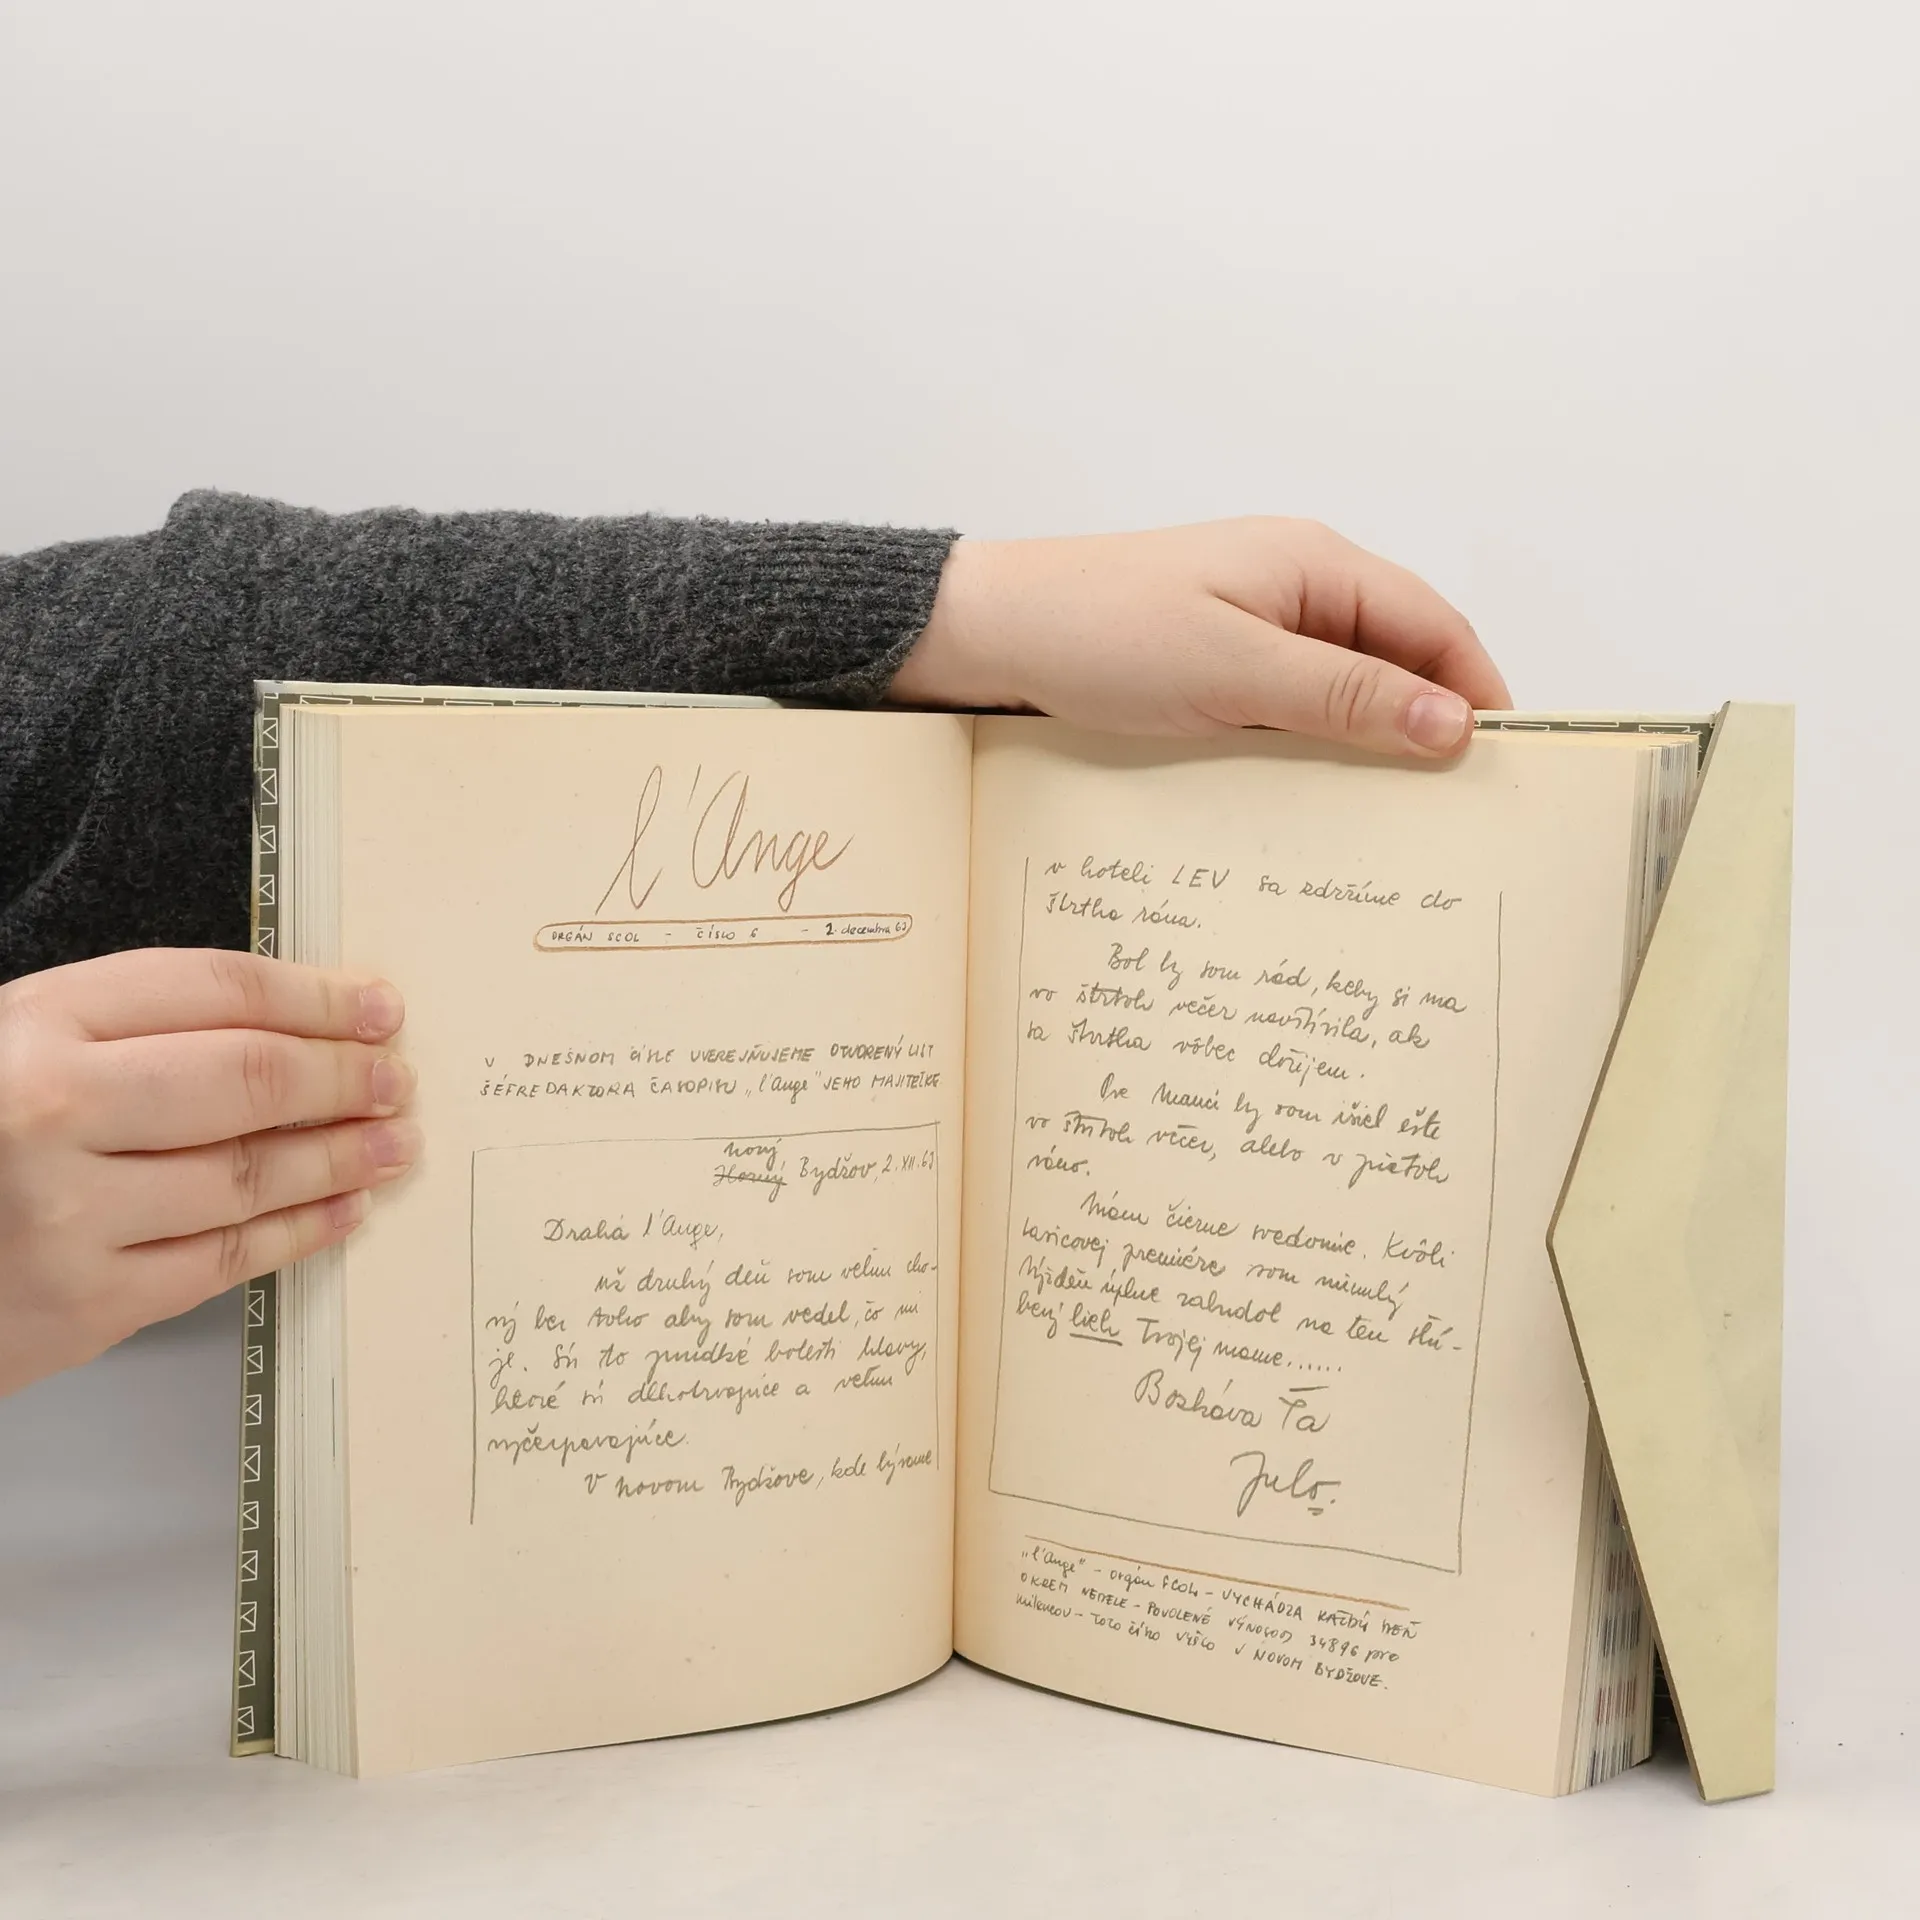 l'Ange
ORGÁN SCOL - ČÍSLO 6 - 2. decembra 63
V DNEŠNOM ČÍSLE UVEREJŇUJEME OTVORENÝ LIST
ŠÉFREDAKTORA ČASOPISU „l'Ange" JEHO MAJITEĽKE
nový
Horný Bydžov, 2. XII. 63
Drahá l'Ange,
už druhý deň som veľmi cho-
rý bez toho aby som vedel, čo mi
je. Sú to prudké bolesti hlavy,
ktoré sú dlhotrvajúce a veľmi
vyčerpavajúce.
V novom Bydžove, kde bývame
v hoteli LEV sa zdržíme do
štvrtka rána.
Bol by som rád, keby si ma
vo štvrtok večer navštívila, ak
sa štvrtka vôbec dožijem.
Pre Manci by som išiel ešte
vo štvrtok večer, alebo v piatok
ráno.
Mám čierne svedomie. Kvôli
Lasicovej premiére som minulý
týždeň úplne zabudol na ten sľú-
bený lieh Tvojej mame......
Bozkáva Ťa
Julo.
„l'Ange" - orgán SCOL - VYCHÁDZA KAŽDÝ DEŇ
OKREM NEDELE - POVOLENÉ VÝNOSOM 34896 pre
milencov - TOTO ČÍSLO VYŠLO V NOVOM BYDŽOVE.